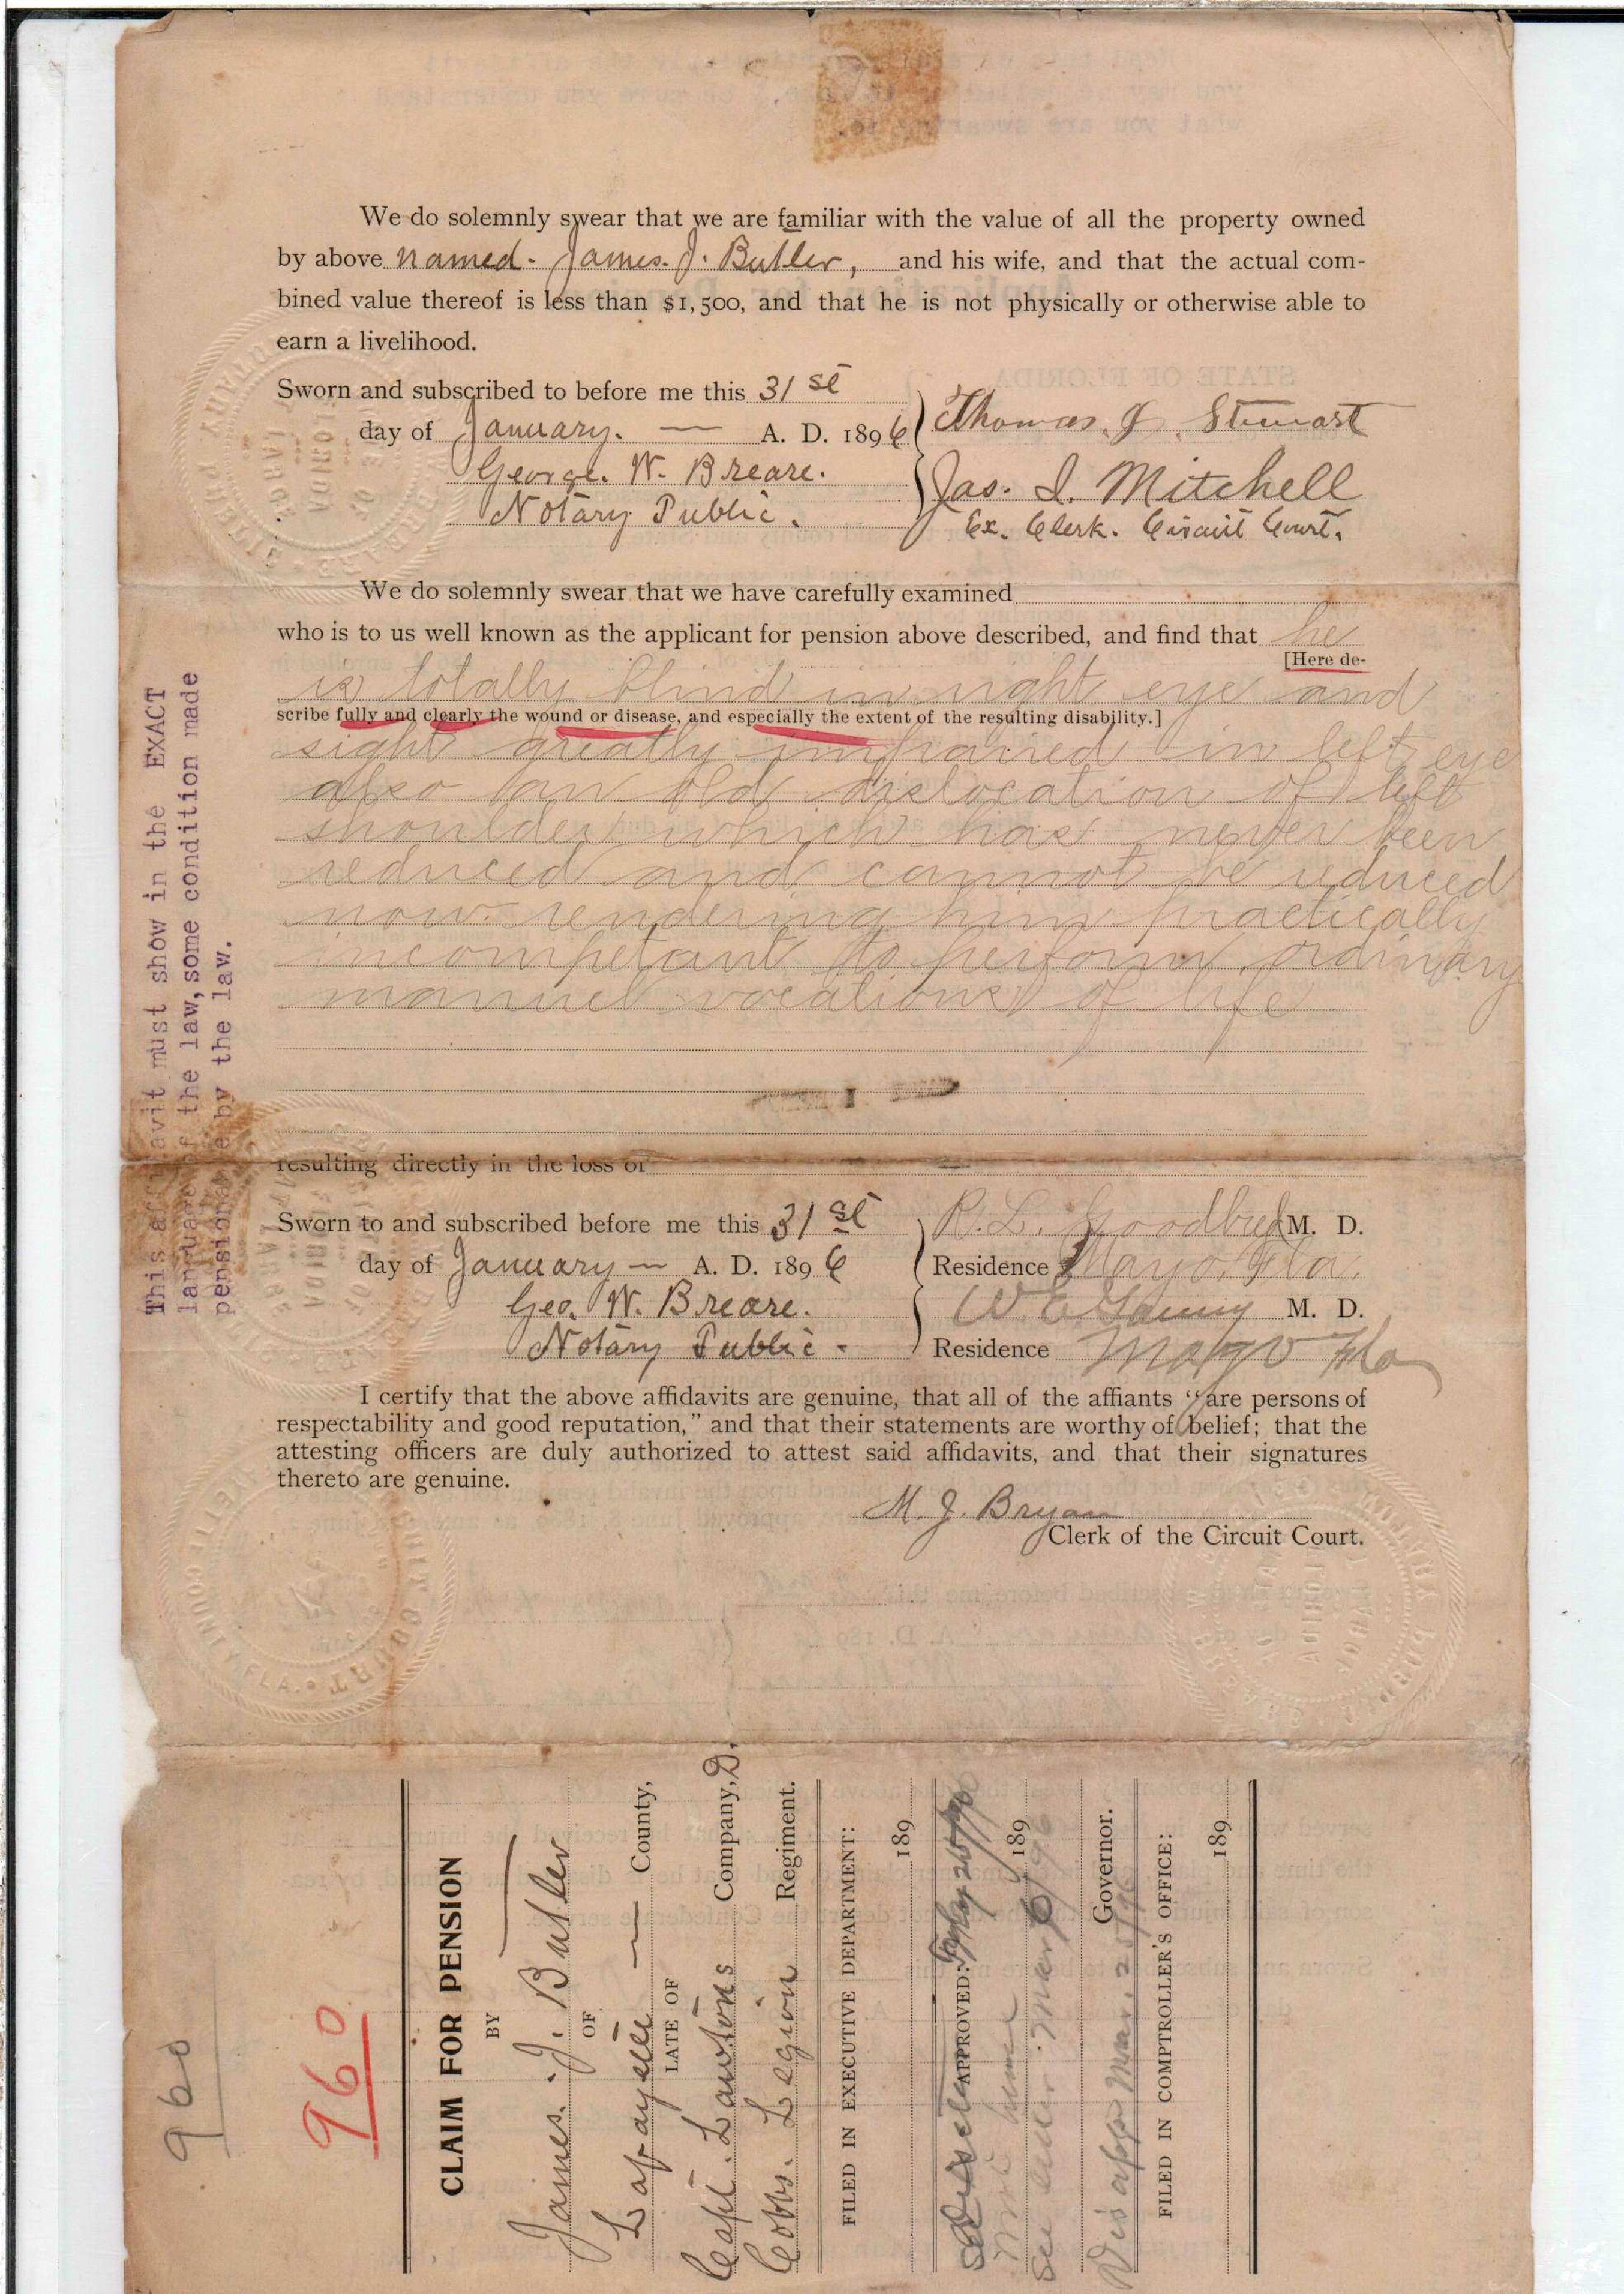 We do solemnly swear that we are familiar with the value of all the property owned
by above named. James. J. Butler, and his wife, and that the actual com-
bined value thereof is less than $1,500, and that he is not physically or otherwise able to
earn a livelihood.
Sworn and subscribed to before me this 31st
day of January. — A. D. 1896
Thomas. J. Stewart
George. W. Breare.
Jas. I. Mitchell
Notary Public.
Ex. Clerk. Circuit Court.
We do solemnly swear that we have carefully examined
who is to us well known as the applicant for pension above described, and find that he
[Here de-
is totally blind in right eye and
scribe fully and clearly the wound or disease, and especially the extent of the resulting disability.]
sight greatly impaired in left eye
also an old dislocation of left
shoulder which has never been
reduced and cannot be reduced
now rendering him practically
incompetant to perform ordinary
manuel vocations of life
resulting directly in the loss of
Sworn to and subscribed before me this 31st
R. L. Goodbred M. D.
day of January — A. D. 1896
Residence Mayo, Fla.
Geo. W. Breare.
W. E. M. D.
Notary Public -
Residence Mayo Fla
I certify that the above affidavits are genuine, that all of the affiants "are persons of
respectability and good reputation," and that their statements are worthy of belief; that the
attesting officers are duly authorized to attest said affidavits, and that their signatures
thereto are genuine.
M. J. Bryan
Clerk of the Circuit Court.
This affidavit must show in the EXACT
language of the law, some condition made
pensionable by the law.
960
960
CLAIM FOR PENSION
BY
James. J. Butler
OF
Lafayette — County,
LATE OF
Capt. Lawtons Company, D.
Cobbs. Legion Regiment.
FILED IN EXECUTIVE DEPARTMENT:
189
APPROVED:
189
See
Governor.
Disapp Mar. 25/96
FILED IN COMPTROLLER'S OFFICE:
189